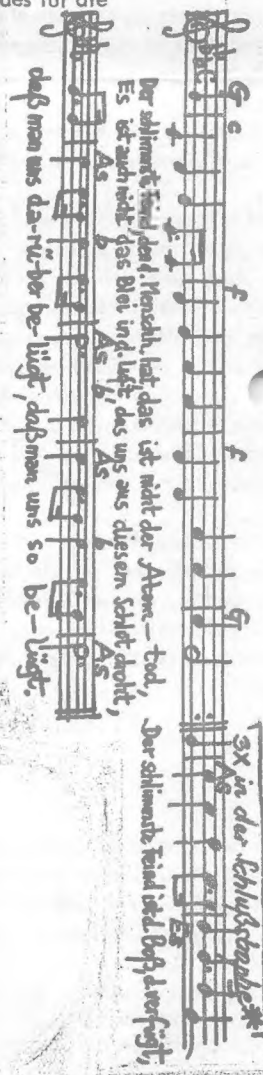 des für die
G c f f G
3x in der Schlußstrophe *
As Es
Der schlimmste Feind, den d. Menschh. hat das ist nicht der Atom-tod,
Es ist auch nicht das Blei in d. Luft das uns aus diesem Schlot droht,
Der schlimmste Feind ist d. Boß, d. verfügt,
As b As b As b As
daß man uns da-rü-ber be-lügt, daß man uns so be-lügt.